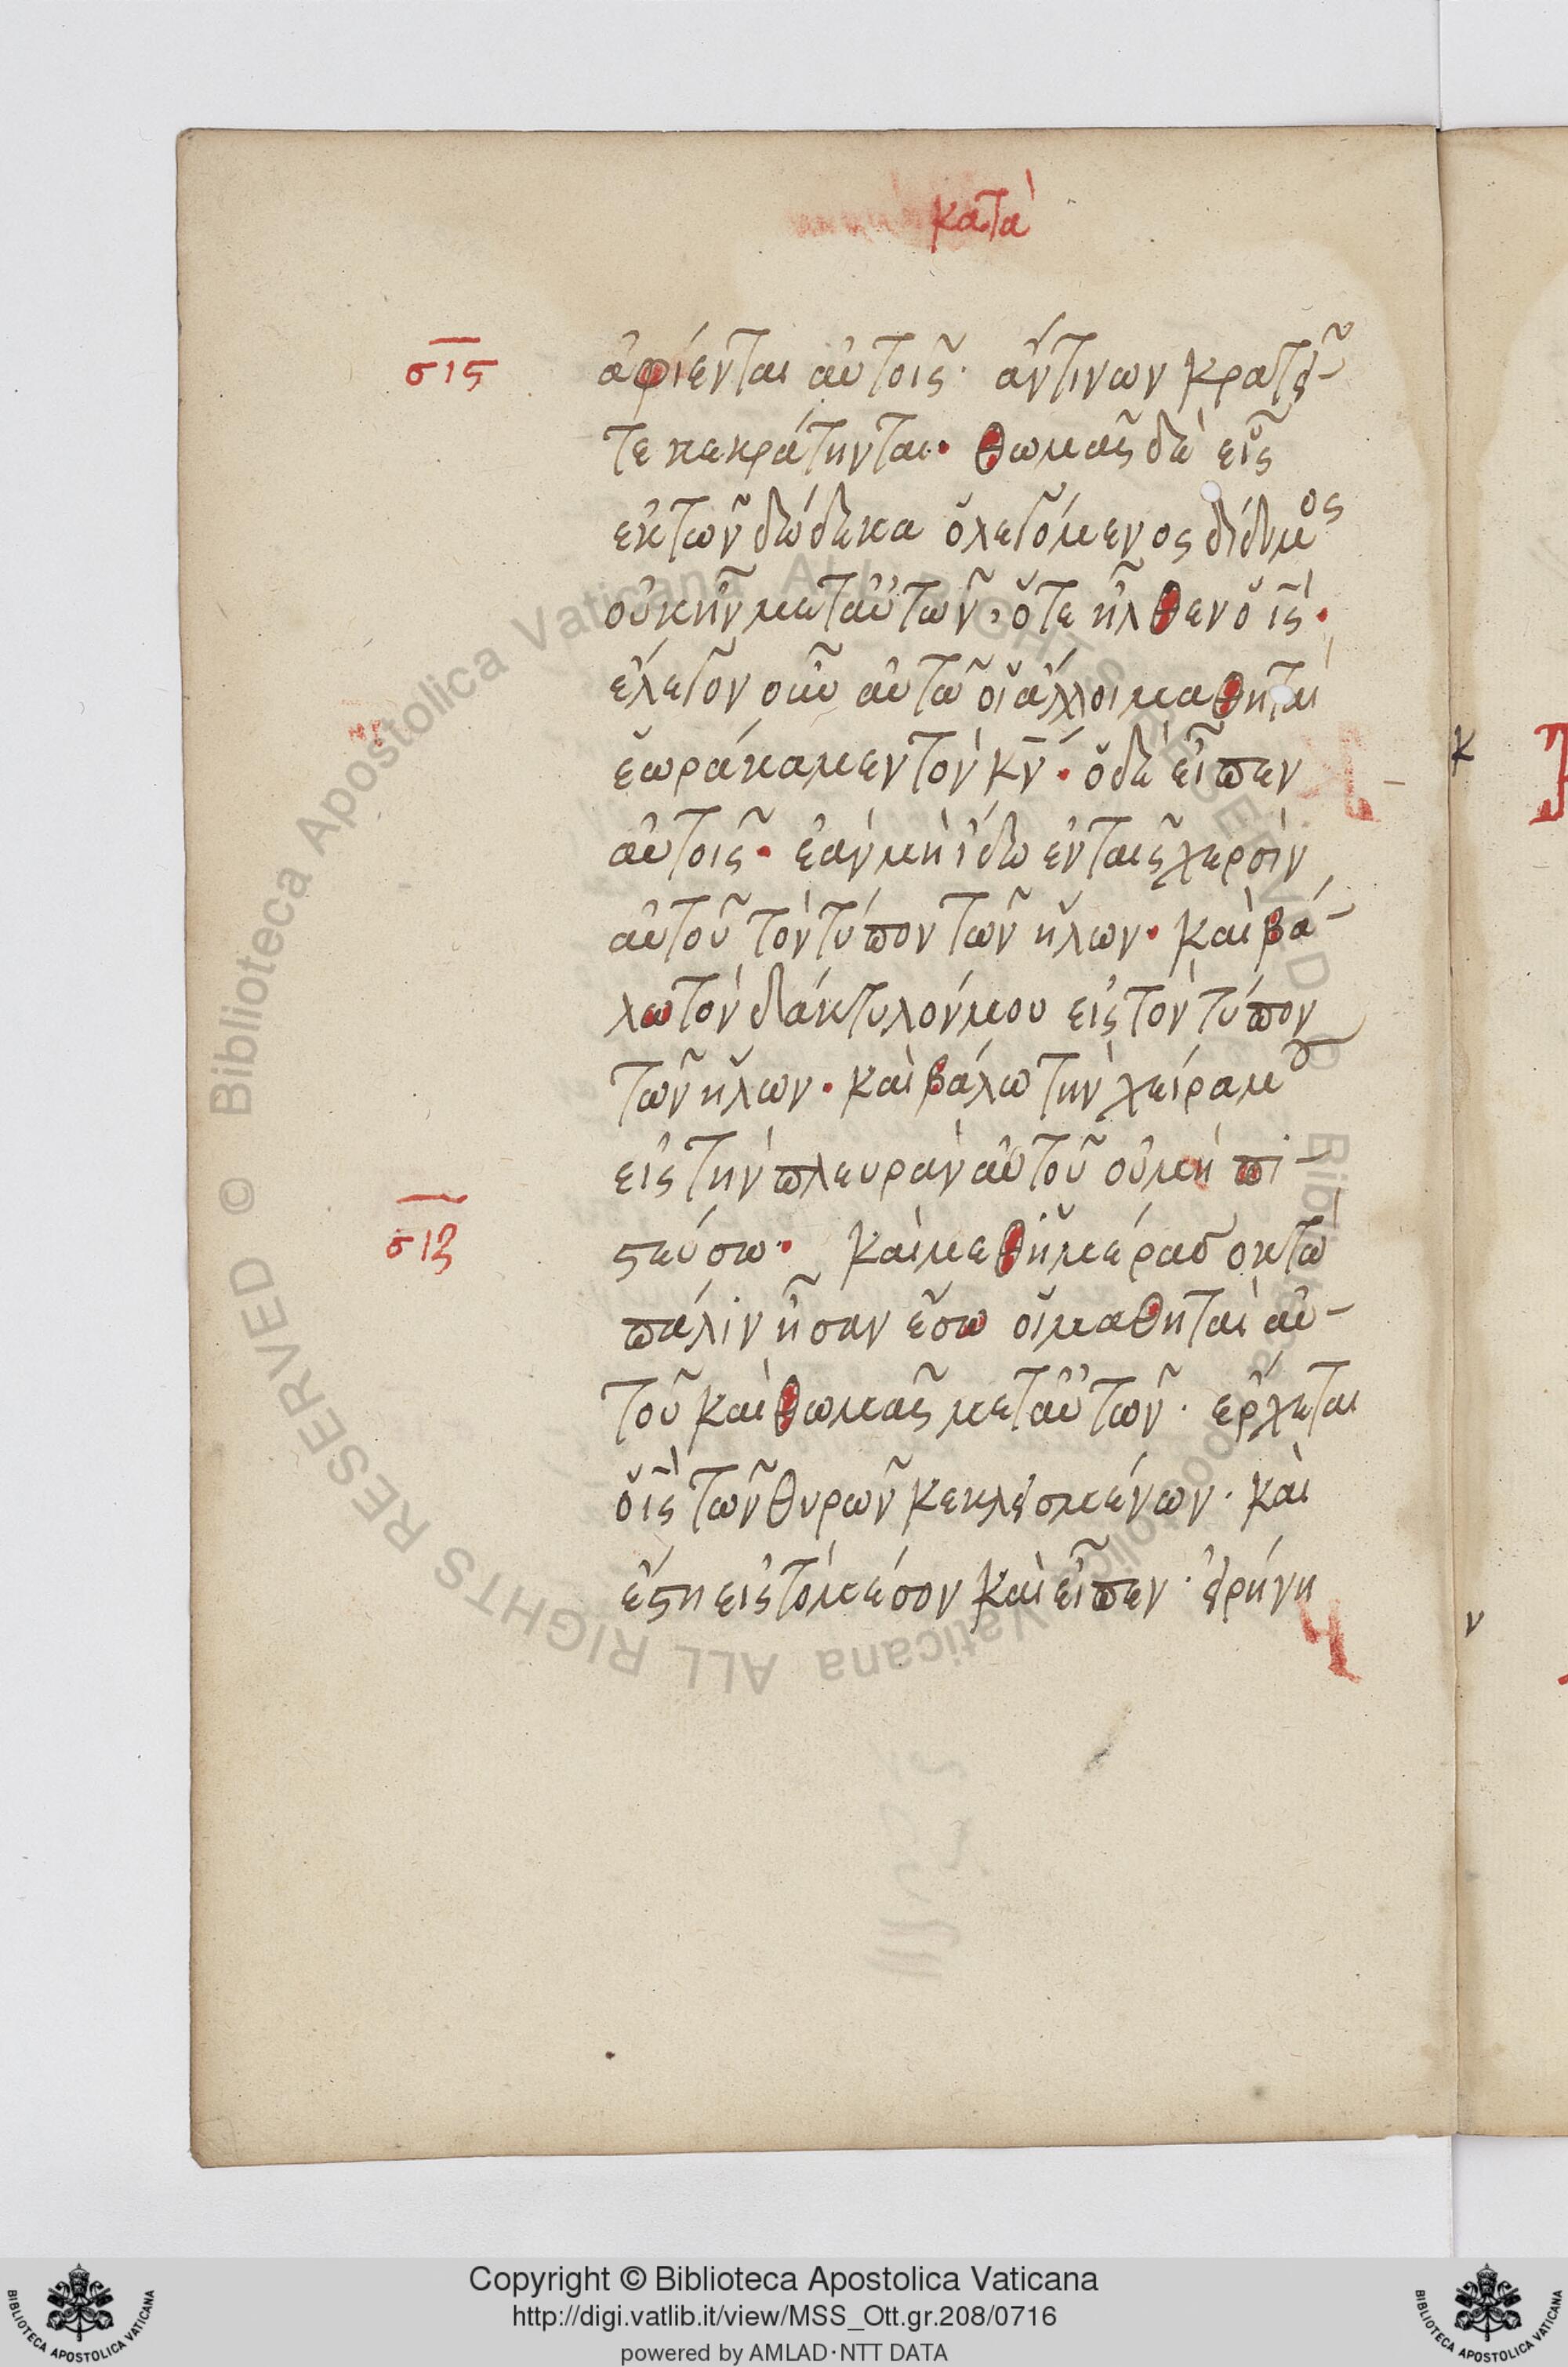 κατὰ
σις
ἀφίενται αὐτοῖς· ἄν τινων κρατεῖ-
τε κεκράτηνται· Θωμᾶς δὲ εἷς
ἐκ τῶν δώδεκα ὁ λεγόμενος δίδυμος
οὐκ ἦν μετ αὐτῶν, ὅτε ἦλθεν ὁ ις·
ἔλεγον οὖν αὐτῶ οἱ ἄλλοι μαθηταὶ
ἑωράκαμεν τὸν κν· ὁ δὲ εἶπεν
αὐτοῖς· ἐὰν μὴ ἴδω ἐν ταῖς χερσὶν
αὐτοῦ τὸν τύπον τῶν ἥλων· καὶ βά-
λω τὸν δάκτυλόν μου εἰς τὸν τύπον
τῶν ἥλων· καὶ βάλω τὴν χεῖρά μου
εἰς τὴν πλευρὰν αὐτοῦ οὐ μὴ πι-
ϛεύσω· καὶ μεθ ἡμέρας ὀκτὼ
σιζ
πάλιν ἦσαν ἔσω οἱ μαθηταὶ αὐ-
τοῦ καὶ Θωμᾶς μετ αὐτῶν· ἔρχεται
ὁ ις τῶν θυρῶν κεκλεισμένων· καὶ
ἔϛη εἰς τὸ μέσον καὶ εἶπεν· εἰρήνη
κ
ν
© Biblioteca Apostolica Vaticana ALL RIGHTS RESERVED
Copyright © Biblioteca Apostolica Vaticana
http://digi.vatlib.it/view/MSS_Ott.gr.208/0716
powered by AMLAD·NTT DATA
BIBLIOTECA APOSTOLICA VATICANA
BIBLIOTECA APOSTOLICA VATICANA